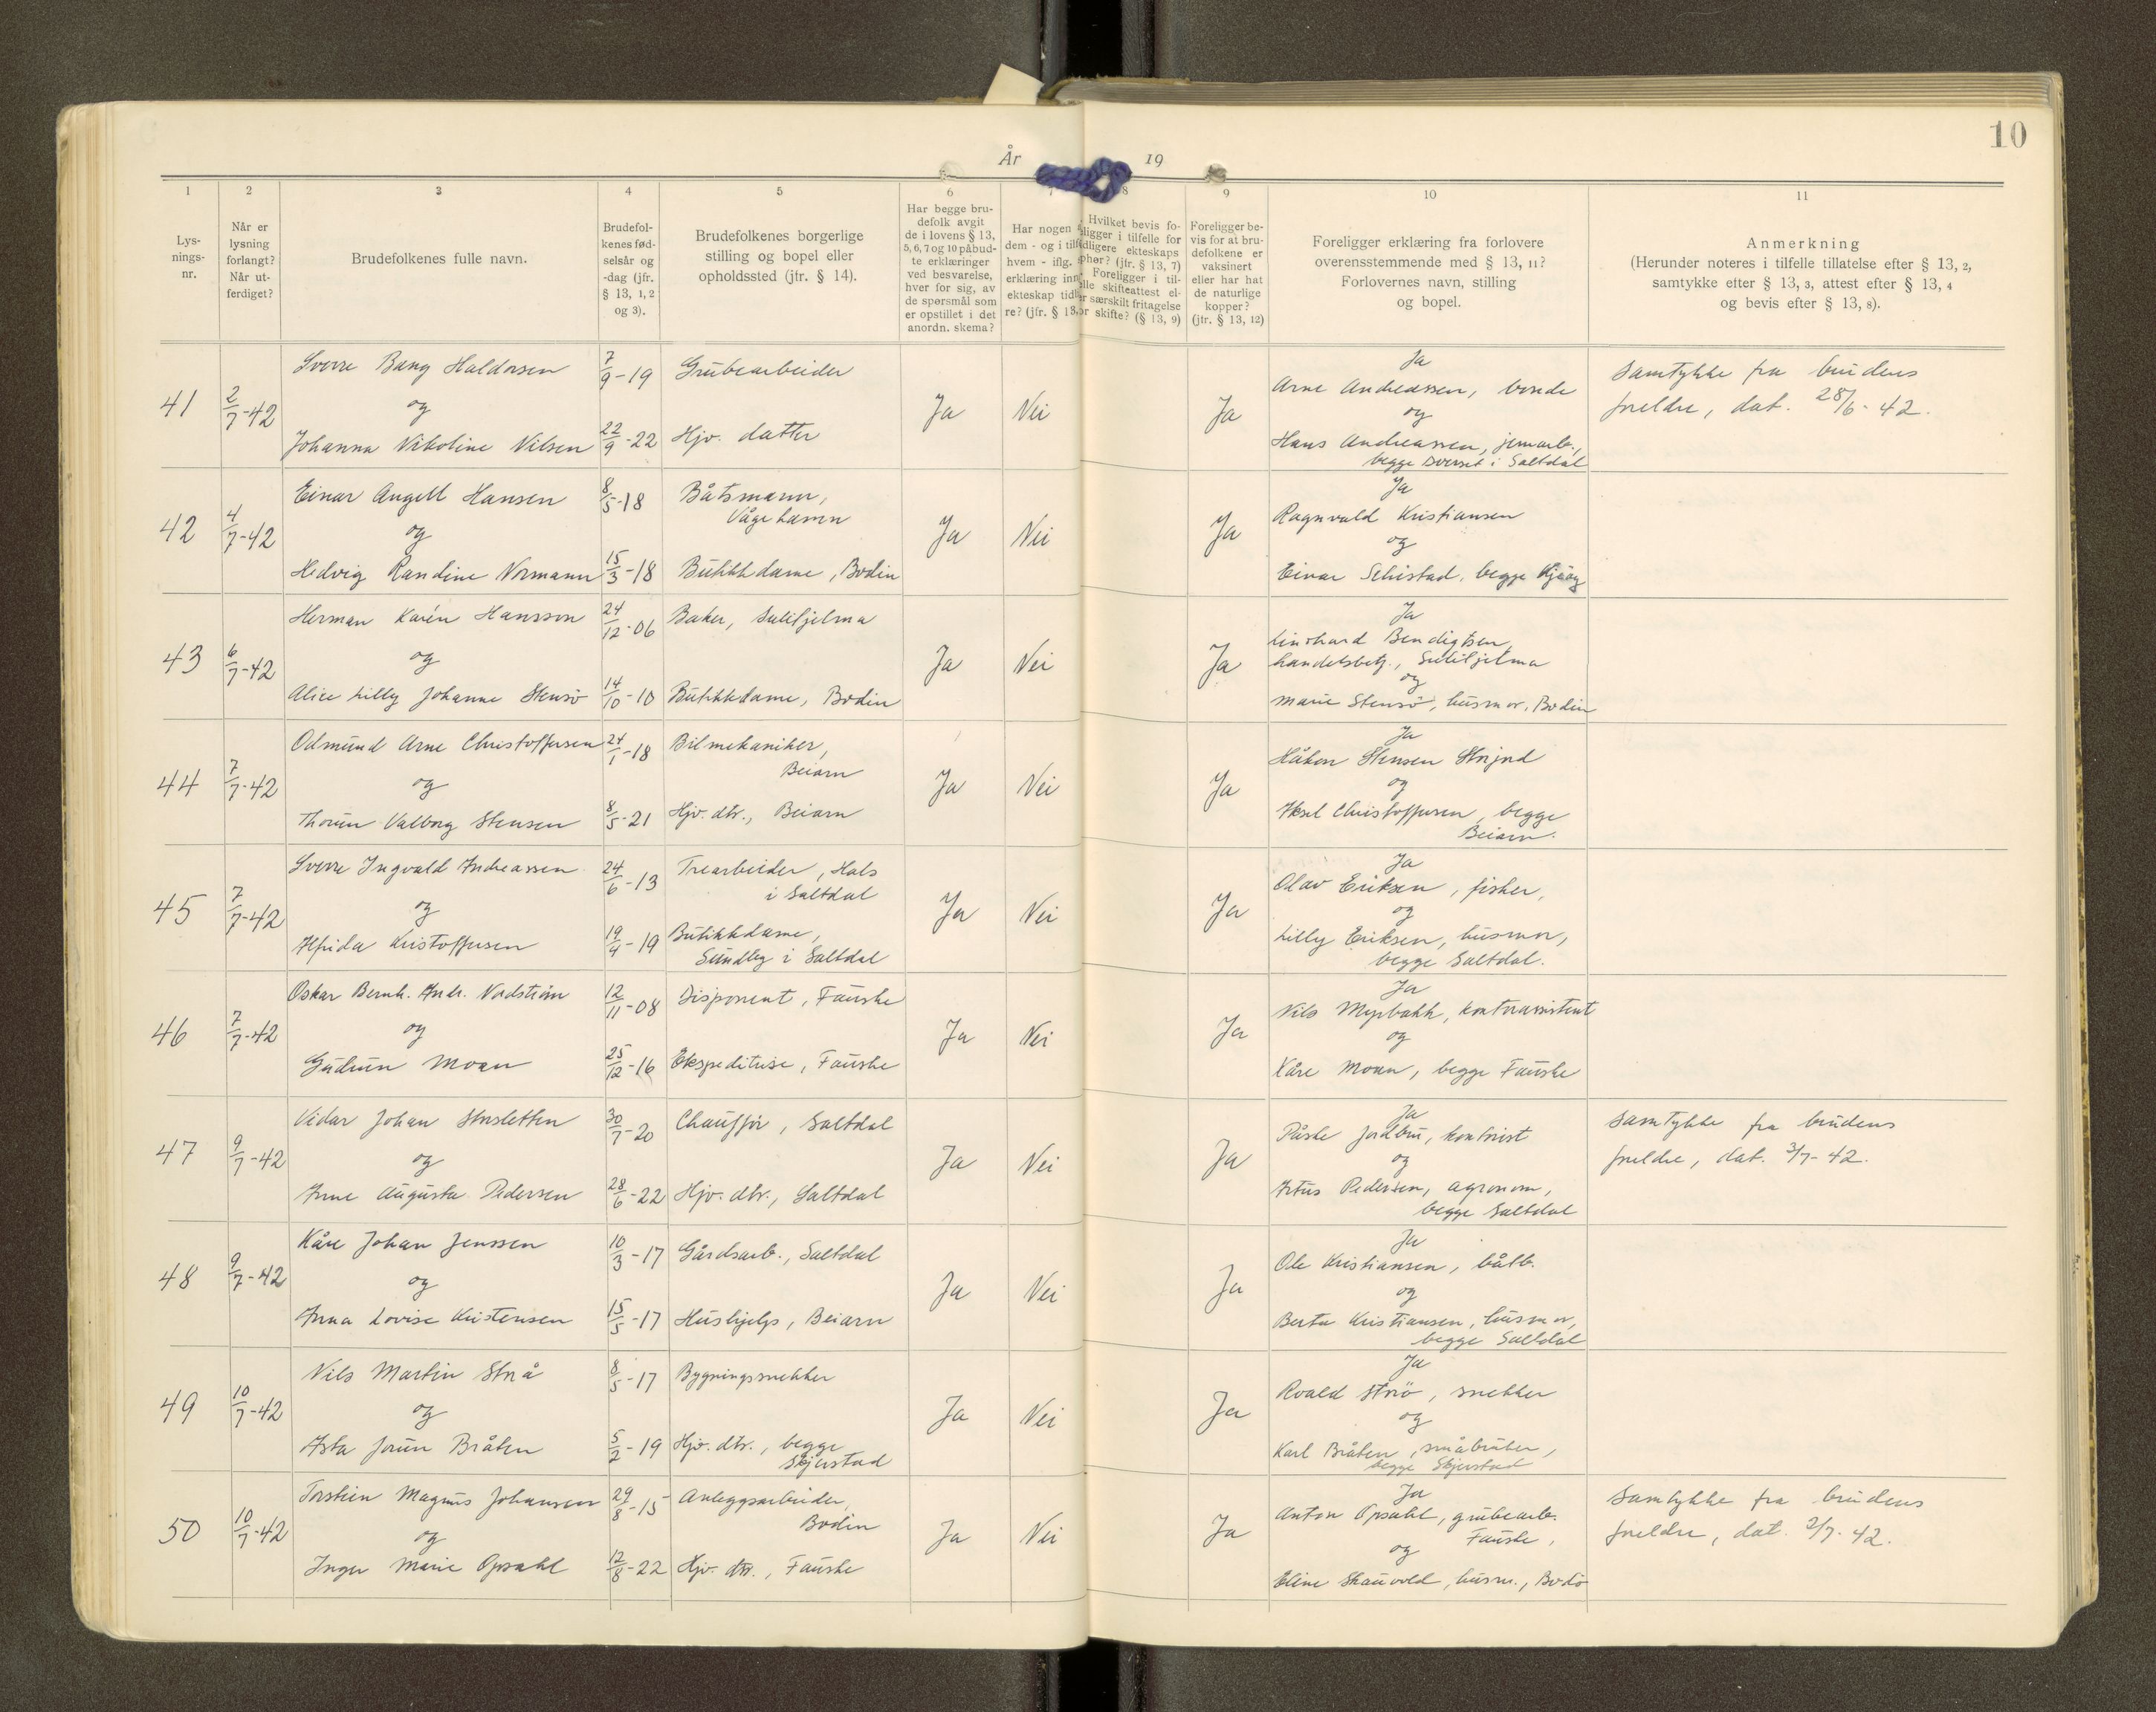 10
År 19
1 2 3 4 5 6 7 8 9 10 11
Lys-
nings-
nr.
Når er
lysning
forlangt?
Når ut-
ferdiget?
Brudefolkenes fulle navn.
Brudefol-
kenes fød-
selsår og
-dag (jfr.
§ 13, 1, 2
og 3).
Brudefolkenes borgerlige
stilling og bopel eller
opholdssted (jfr. § 14).
Har begge bru-
defolk avgit
de i lovens § 13,
5, 6, 7 og 10 påbud-
te erklæringer
ved besvarelse,
hver for sig, av
de spørsmål som
er opstillet i det
anordn. skema?
Har nogen
dem - og i
hvem - iflg.
erklæring
ekteskap
re? (jfr. § 13,
Hvilket bevis fo-
religger i tilfelle for
tidligere ekteskaps
ophør? (jfr. § 13, 7)
Foreligger i til-
felle skifteattest el-
er særskilt fritagelse
for skifte? (§ 13, 9)
Foreligger be-
vis for at bru-
defolkene er
vaksinert
eller har hat
de naturlige
kopper?
(jfr. § 13, 12)
Foreligger erklæring fra forlovere
overensstemmende med § 13, 11?
Forlovernes navn, stilling
og bopel.
Anmerkning
(Herunder noteres i tilfelle tillatelse efter § 13, 2,
samtykke efter § 13, 3, attest efter § 13, 4
og bevis efter § 13, 8).
41
2/7-42
Sverre Bang Haldorsen
og
Johanna Nikoline Nilsen
7/9-19
22/9-22
Grubearbeider
Hjv. datter
Ja
Nei
Ja
Ja
Arne Andreassen, bonde
og
Hans Andreassen, jernarb.,
begge i Saltdal
Samtykke fra brudens
foreldre, dat. 28/6-42.
42
4/7-42
Einar Angell Hansen
og
Hedvig Randine Normann
8/5-18
15/3-18
Båtsmann,
Butikkdame, Bodin
Ja
Nei
Ja
Ja
Ragnvald Kristiansen
og
Einar Schistad, begge
43
6/7-42
Herman Karén Hansson
og
Alice Lilly Johanne Stensø
24/12-06
14/10-10
Baker, Sulitjelma
Butikkdame, Bodin
Ja
Nei
Ja
Ja
Linohard Bendigtsen,
handelsbetj., Sulitjelma
og
Marie Stensø, husmor, Bodin
44
7/7-42
Odmund Arne Christoffersen
og
Thorun Valborg Stensen
24/1-18
8/5-21
Bilmekaniker,
Beiarn
Hjv. dtr., Beiarn
Ja
Nei
Ja
Ja
Håkon Stensen Storjord
og
Aksel Christoffersen, begge
Beiarn.
45
7/7-42
Sverre Ingvald Andreassen
og
Alfrida Kristoffersen
24/6-13
19/4-19
Trearbeider, Hals
i Saltdal
Butikkdame,
Sundby i Saltdal
Ja
Nei
Ja
Ja
Olav Eriksen, fisker,
og
Lilly Eriksen, husmor,
begge Saltdal.
46
7/7-42
Oskar Bernh. Andr. Nordstrøm
og
Gudrun Moan
12/11-08
25/12-16
Disponent, Fauske
Ekspeditrise, Fauske
Ja
Nei
Ja
Ja
Nils Myrbakk, kontorassistent
og
Kåre Moan, begge Fauske
47
9/7-42
Vidar Johan Storsletten
og
Anne Augusta Pedersen
30/7-20
28/6-22
Chauffør, Saltdal
Hjv. dtr., Saltdal
Ja
Nei
Ja
Ja
Påske Jordbru, kontorist
og
Artus Pedersen, agronom,
begge Saltdal
Samtykke fra brudens
foreldre, dat. 3/7-42.
48
9/7-42
Kåre Johan Jenssen
og
Anna Lovise Kristensen
10/3-17
15/5-17
Gårdsarb., Saltdal
Hushjelp, Beiarn
Ja
Nei
Ja
Ja
Ole Kristiansen, båtb.
og
Berta Kristiansen, husmor,
begge Saltdal
49
10/7-42
Nils Martin Strø
og
Asta Jorun Bråten
8/5-17
5/2-19
Bygningssnekker
Hjv. dtr., begge
Skjerstad
Ja
Nei
Ja
Ja
Roald Strø, snekker
og
Karl Bråten, småbruker,
begge Skjerstad
50
10/7-42
Torstein Magnus Johansen
og
Inger Marie Opsahl
29/8-15
12/8-22
Anleggsarbeider,
Bodin
Hjv. dtr., Fauske
Ja
Nei
Ja
Ja
Anton Opsahl, grubearb.
Fauske,
og
Eline Skauvold, husm., Bodø
Samtykke fra brudens
foreldre, dat. 2/7-42.